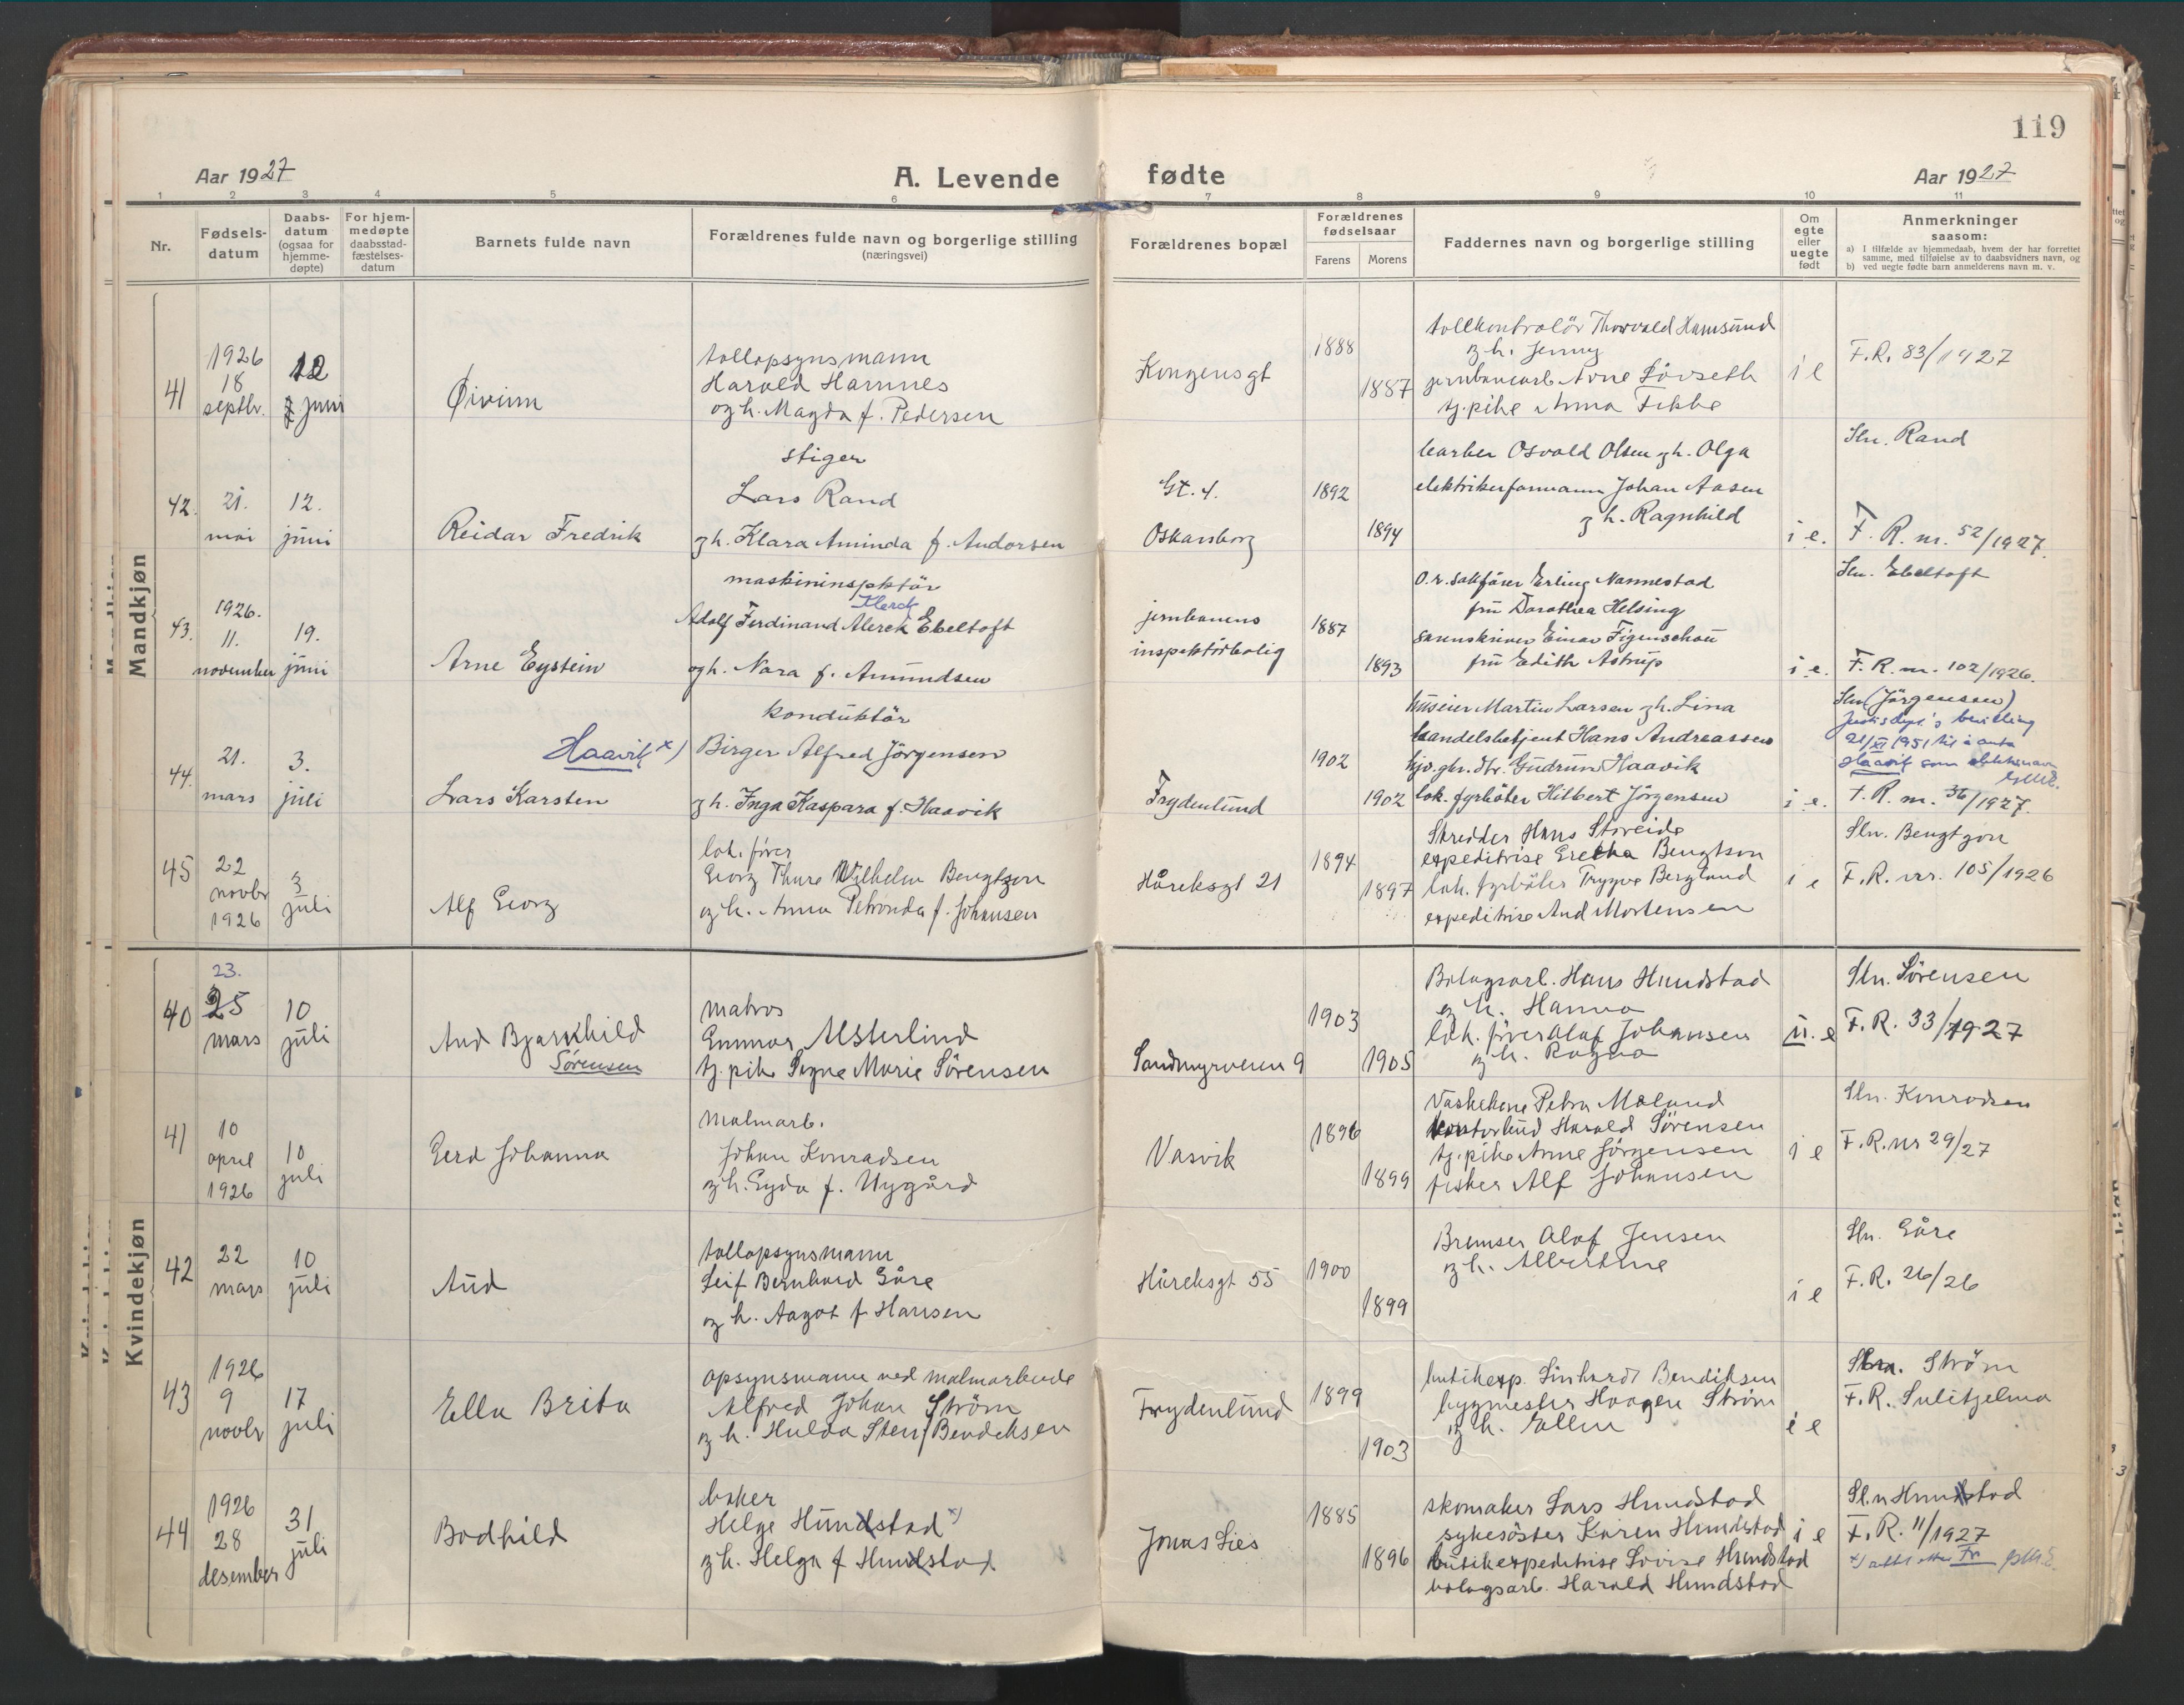 119
Aar 1927
A. Levende fødte
Aar 1927
1 2 3 4 5 6 7 8 9 10 11
Nr.
Fødselsdatum
Daabsdatum (ogsaa for hjemmedøpte)
For hjemmedøpte daabsstadfæstelsesdatum
Barnets fulde navn
Forældrenes fulde navn og borgerlige stilling (næringsvei)
Forældrenes bopæl
Forældrenes fødselsaar
Farens Morens
Faddernes navn og borgerlige stilling
Om egte eller uegte født
Anmerkninger saasom:
a) I tilfælde av hjemmedaab, hvem der har forrettet samme, med tilføielse av to daabsvidners navn, og
b) ved uegte fødte barn anmelderens navn m. v.
Mandkjøn
41
1926
18
septbr.
12
juni
Øivinn
tollopsynsmann
Harald Hamnes
og h. Magda f. Pedersen
Kongensgt
1888
1887
tollkontrolör Thorvald Hamsund
og h. Jenny
jernbanearb. Arne Lövseth
tj.pike Anna Fikke
i e
F.R. 83/1927
42.
21.
mai
12.
juni
Reidar Fredrik
stiger
Lars Rand
og h. Klara Aminda f. Andorsen
Gt. 4.
Oskarsborg
1892
1894
barber Osvald Olsen og h. Olga
elektrikerformann Johan Aasen
og h. Ragnhild
i e.
Sln. Rand
F. R. nr. 52/1927.
43.
1926.
11.
november
19.
juni
Arne Eystein
maskininspektör
Klerck
Adolf Ferdinand Alerek Ebeltoft
og h. Nora f. Amundsen
jernbanens
inspektörbolig
1887
1893
o.r.sakförer Erling Nannestad
fru Dorothea Helsing
sorenskriver Einar Figenschou
fru Edith Astrup
i e.
Sln. Ebeltoft
F. R. nr. 102/1926.
44.
21.
mars
3.
juli
Haavik x)
Lars Karsten
konduktör
Birger Alfred Jörgensen
og h. Inga Kaspara f. Haavik
Frydenlund
1902
1902
huseier Martin Larsen og h. Lina
handelsbetjent Hans Andreassen
Gudrun Haavik
lok. fyrböter Hilbert Jörgensen
i e.
Sln (Jörgensen)
Justisdept's bevilling
21/XI 1951 til å anta
Haavik som slektsnavn
F. R. nr. 36/1927.
45
22
novbr
1926
3
juli
Alf Georg
lok. förer
Georg Thure Wilhelm Bengtzon
og h. Anna Petronda f. Johansen
Håreksgt 21
1894
1897
Skredder Hans Storeide
expeditrise Gretha Bengtson
lok. fyrböter Trygve Berglund
expeditrise Aud Mortensen
i e
Sln. Bengtzon
F.R. nr. 105/1926
Kvindekjøn
40
23.
25
mars
10
juli
Aud Bjarkhild
Sörensen
matros
Gunnar Alsterlind
tj. pike Signe Marie Sörensen
Sandmyrveien 9
1903
1905
Bolagsarb. Hans Hundstad
og h. Hanna
lok. förer Olaf Johansen
og h. Ragna
u. e
Sln. Sörensen
F.R. 33/1927
41
10
april
1926
10
juli
Gerd Johanna
Malmarb.
Johan Konradsen
og h. Gyda f. Nygård
Vasvik
1896
1899
Vaskekone Petra Moland
kontorbud Harald Sörensen
tj. pike Anne Jörgensen
fisker Alf Johansen
i e
Sln. Konradsen
F.R. nr 29/27
42
22
mars
10
juli
Aud
tollopsynsmann
Leif Bernhard Gåre
og h. Aagot f. Hansen
Håreksgt 55
1900
1899
Bremser Olaf Jensen
og h. Albertine
i e
Sln. Gåre
F.R. 26/26
43
1926
9
novbr
17
juli
Ella Brita
opsynsmann ved malmarbeide
Alfred Johan Ström
og h. Hulda Sten f Bendiksen
Frydenlund
1899
1903
butikexp. Linhardt Bendiksen
bygmester Haagen Ström
og h. Ellen
i e
Sln. Ström
F.R. Sulitjelma
44
1926
28
desember
31
juli
Bodhild
baker
Helge Hundstad x)
og h. Helga f Hundstad
Jonas Lies
1885
1896
skomaker Lars Hundstad
sykesöster Karen Hundstad
butikexpeditrise Lovise Hundstad
bolagsarb. Harald Hundstad
i e
Sln Hundstad
F.R. 11/1927